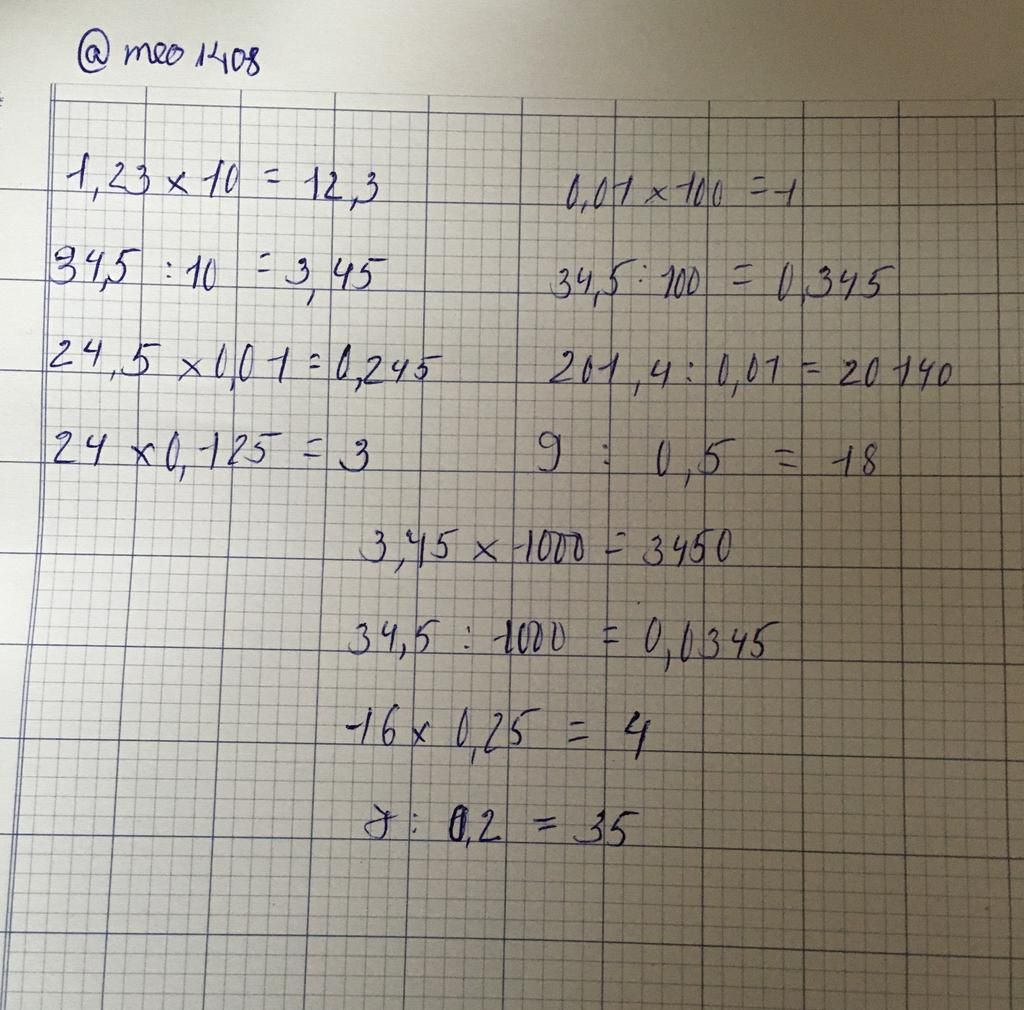 @meo1408
1,23 x 10 = 12,3 0,01 x 100 = 1
34,5 : 10 = 3,45 34,5 : 100 = 0,345
24,5 x 0,01 = 0,245 201,4 : 0,01 = 20140
24 x 0,125 = 3 9 : 0,5 = 18
3,45 x 1000 = 3450
34,5 : 1000 = 0,0345
16 x 0,25 = 4
7 : 0,2 = 35